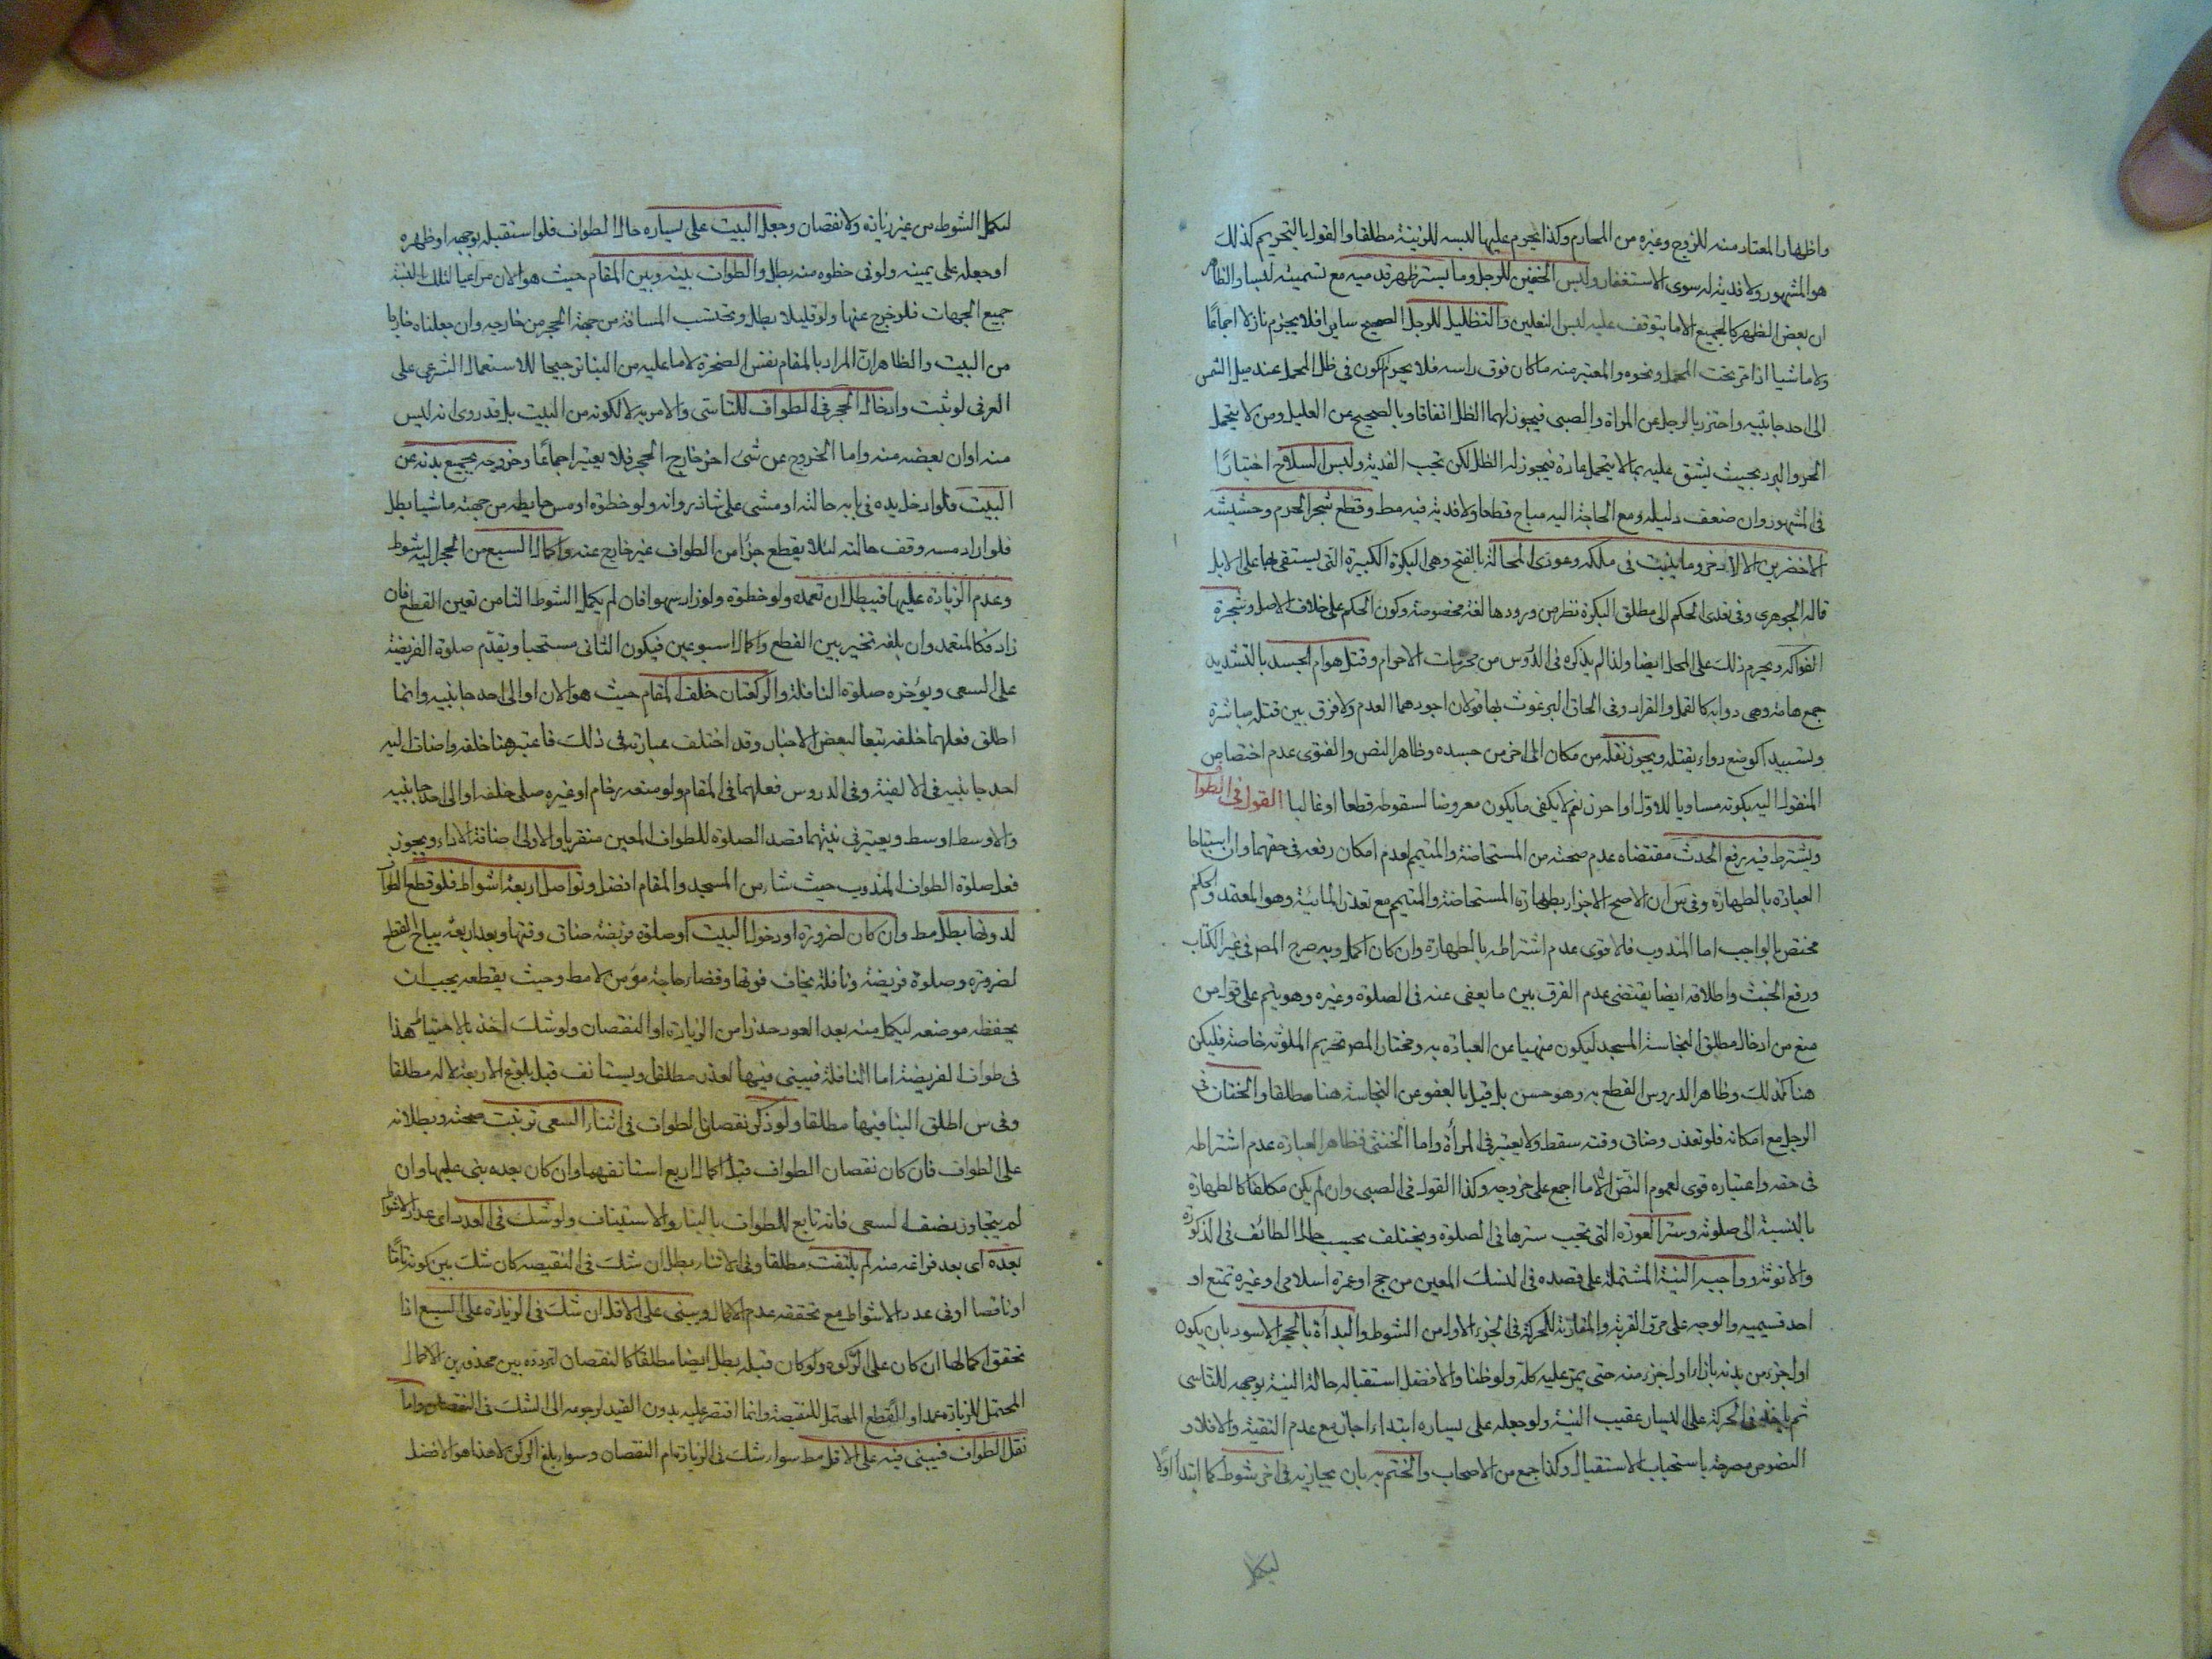 واظهار المعتاد منه للزوج وغيره من المحارم وكذا يحرم عليها لبسه للزينة مطلقا والقول بالتحريم كذلك
هو المشهور ولا فدية له سوى الاستغفار ولبس الخفين للرجل وما يستر ظهر قدميه مع تسميته لبسا والظاهر
ان بعض الظهر كالجميع الا ما يتوقف عليه لبس النعلين والتظليل للرجل الصحيح سايرا فلا يحرم نازلا اجماعًا
ولا ماشيا اذا مر تحت المحمل ونحوه والمعتبر منه ما كان فوق راسه فلا يحرم الكون في ظل المحمل عند ميل الشمس
الى احد جانبيه واحترز بالرجل عن المراة والصبي فيجوز لهما الظل اتفاقا وبالصحيح عن العليل ومن لا يتحمل
الحر والبرد بحيث يشق عليه بما لا يتحمل عادة فيجوز له الظل لكن تجب الفدية ولبس السلاح اختيارًا
في المشهور وان ضعف دليله ومع الحاجة اليه مباح قطعا ولا فدية فيه مط وقطع شجر الحرم وحشيشه
الاخضرين الا الاذخر وما ينبت في ملكه وعودى المحالة بالفتح وهي البكرة الكبيرة التي يستقى بها على الابل
قاله الجوهري وفي تعدى الحكم الى مطلق البكرة نظر من ورودها لغة مخصوصة وكون الحكم على خلاف الاصل وشجرة
الفواكه ويحرم ذلك على المحل ايضا ولذا لم يذكره في الدروس من محرمات الاحرام وقتل هوام الجسد بالتشديد
جمع هامة وهي دوابه كالقمل والقراد وفي الحاق البرغوث بها قولان اجودهما العدم ولا فرق بين قتله مباشرة
وتسبيبا كوضع دواء يقتله ويجوز نقله من مكان الى اخر من جسده وظاهر النص والفتوى عدم اختصاص
المنقول اليه بكونه مساويا للاول او احرز نعم لا يكفى ما يكون معروضا لسقوطه قطعا او غالبا القول في الطواف
ويشترط فيه رفع الحدث مقتضاه عدم صحته من المستحاضة والمتيمم لعدم امكان رفعه في حقهما وان استباحا
العبادة بالطهارة وفي س ان الاصح الاجزاء بطهارة المستحاضة والمتيمم مع تعذر المائية وهو المعتمد والحكم
مختص بالواجب اما المندوب فالاقوى عدم اشتراطه بالطهارة وان كان اكمل وبه صرح المصر في غير الكتاب
ورفع الخبث واطلاقه ايضا يقتضى عدم الفرق بين ما يعفى عنه في الصلوة وغيره وهو يتم على قول من
منع من ادخال مطلق النجاسة المسجد ليكون منهيا عن العبادة به ومختار المصر تحريم الملوثة خاصة فليكن
هنا كذلك وظاهر الدروس القطع به وهو حسن بل قيل بالعفو عن النجاسة هنا مطلقا والختان في
الرجل مع امكانه فلو تعذر وضاق وقته سقط ولا يعتبر في المرأة واما الخنثى فظاهر العبارة عدم اشتراطه
في حقه واعتباره قوى لعموم النص الا ما اجمع على خروجه وكذا القول في الصبي وان لم يكن مكلفا كالطهارة
بالنسبة الى صلوته وستر العورة التي تجب سترها في الصلوة ويختلف بحسب حال الطائف في الذكورة
والانوثة وواجبه النية المشتملة على قصده في النسك المعين من حج او عمرة اسلامى او غيره تمتع او
احد قسيميه والوجه على مر والقربة والمقارنة للحركة في الجزء الاول من الشوط والبدأة بالحجر الاسود بان يكون
اول جزء من بدنه بازاء اول جزء منه حتى يمر عليه كله ولو ظنا والافضل استقباله حالة النية بوجهه للتاسى
ثم ياخذ في الحركة على اليسار عقيب النية ولو جعله على يساره ابتداء اجاز مع عدم التقية والا فلا و
النصوص مصرحة باستحباب الاستقبال وكذا جمع من الاصحاب والختم به بان يحاذيه في اخر شوطه كما ابتدأ اولا
ليكمل
ليكمل الشوط من غير زيادة ولا نقصان وجعل البيت على يساره حال الطواف فلو استقبله بوجهه او ظهره
او جعله على يمينه ولو في خطوه منه بطل والطواف بينه وبين المقام حيث هو الان مراعيا لتلك النسبة
جميع الجهات فلو خرج عنها ولو قليلا بطل وتحتسب المسافة من جهة الحجر من خارجه وان جعلناه خارجا
من البيت والظاهر ان المراد بالمقام نفس الصخرة لا ما عليه من البناء ترجيحا للاستعمال الشرعى على
العرفى لو ثبت وادخال الحجر في الطواف للتاسى والامر به لا لكونه من البيت بل قد روى انه ليس
منه او ان بعضه منه واما الخروج عن شئ اخر خارج الحجر فلا يعتبر اجماعًا وخروجه بجميع بدنه عن
البيت فلو ادخل يده في بابه حالته او مشى على شاذروانه ولو خطوة او مس حايطه من جهته ماشيا بطل
فلو اراد مسه وقف حالته لئلا يقطع جزأ من الطواف غير خارج عنه واكمال السبع من الحجر اليه شوط
وعدم الزيادة عليها فيبطل ان تعمده ولو خطوة ولو زاد سهوا فان لم يكمل الشوط الثامن تعين القطع فان
زاد فكالمتعمد وان بلغه تخير بين القطع واكمال اسبوعين فيكون الثاني مستحبا ويقدم صلوة الفريضة
على السعى ويؤخره صلوة النافلة والركعتان خلف المقام حيث هو الان او الى احد جانبيه وانما
اطلق فعلهما خلفه تبعا لبعض الاخبار وقد اختلف عبارته في ذلك فاعتبر هنا خلفه واضاف اليه
احد جانبيه في الالفية وفي الدروس فعلهما في المقام ولو منعه زحام او غيره صلى خلفه او الى احد جانبيه
والاوسط اوسط ويعتبر في نيتهما قصد الصلوة للطواف المعين متقربا والاولى اضافة الاداء ويجوز
فعل صلوة الطواف المندوب حيث شاء من المسجد والمقام افضل وتواصل اربعة اشواط فلو قطع الطواف
لدونها بطل مط وان كان لضرورة او دخول البيت او صلوة فريضة ضاق وقتها وبعد اربعة يباح القطع
لضرورة وصلوة فريضة ونافلة يخاف فوتها وقضاء حاجة مؤمن لا مط وحيث يقطعه يجب ان
يحفظه موضعه ليكمل منه بعد العود حذرا من الزيادة او النقصان ولو شك اخذ بالاحتياط هذا
في طواف الفريضة اما النافلة فيبنى فيها لعذر مطلقا ويستانف قبل بلوغ الاربعة لا له مطلقا
وفي س اطلق البنا فيها مطلقا ولو ذكر نقصان الطواف في اثناء السعى ترتبت صحته وبطلانه
على الطواف فان كان نقصان الطواف قبل اكمال اربع استانفهما وان كان بعده بنى عليهما وان
لم يتجاوز نصف السعى فانه تابع للطواف بالبناء والاستيناف ولو شك في العدد اى عدد الاشواط
بعده اى بعد فراغه منه لم يلتفت مطلقا وفي الاثناء بطل ان شك في النقيصه كان شك بين كونه تامًا
او ناقصا او في عدد الاشواط مع تحققه عدم الاكمال ويبنى على الاقل ان شك في الزيادة على السبع اذا
تحقق اكمالها ان كان على الركن ولو كان قبله بطل ايضا مطلقا كالنقصان لتردده بين محذورين الاكمال
المحتمل للزيادة عمدا والقطع المحتمل للنقيصة وانما اقتصر عليه بدون القيد لرجوعه الى الشك في النقصان واما
نفل الطواف فيبنى فيه على الاقل مط سواء شك في الزيادة ام النقصان وسواء بلغ الركن لا هذا هو الافضل